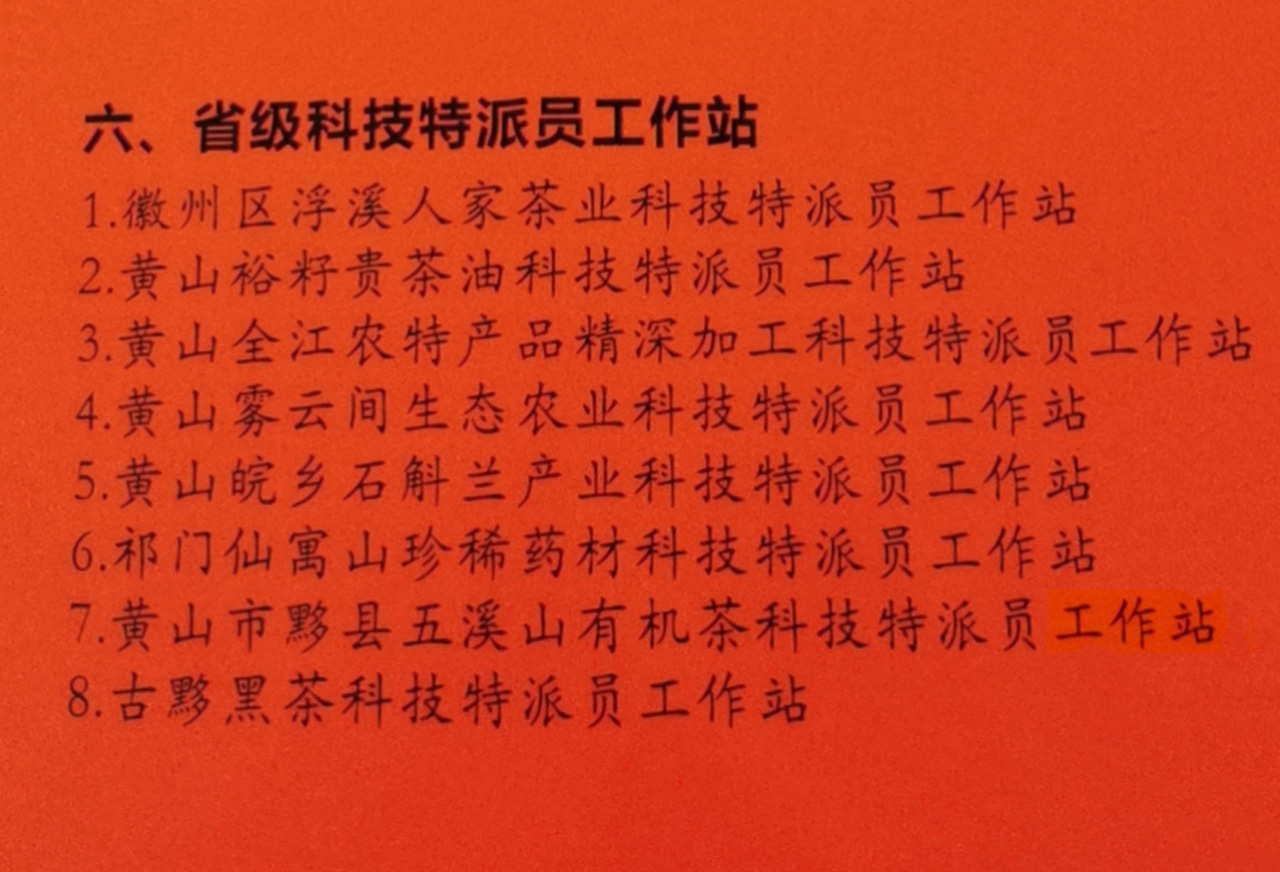 六、省级科技特派员工作站
1.徽州区浮溪人家茶业科技特派员工作站
2.黄山裕籽贵茶油科技特派员工作站
3.黄山全江农特产品精深加工科技特派员工作站
4.黄山雾云间生态农业科技特派员工作站
5.黄山皖乡石斛兰产业科技特派员工作站
6.祁门仙寓山珍稀药材科技特派员工作站
7.黄山市黟县五溪山有机茶科技特派员工作站
8.古黟黑茶科技特派员工作站